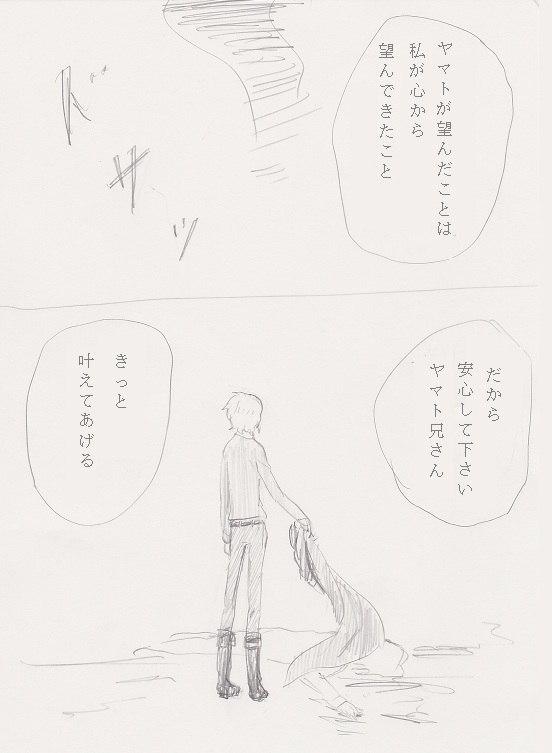 ヤマトが望んだことは
私が心から
望んできたこと
ドサッ
だから
安心して下さい
ヤマト兄さん
きっと
叶えてあげる